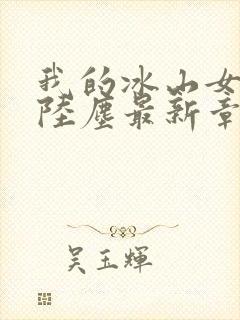 我的冰山女
陸塵最新章
吳玉輝